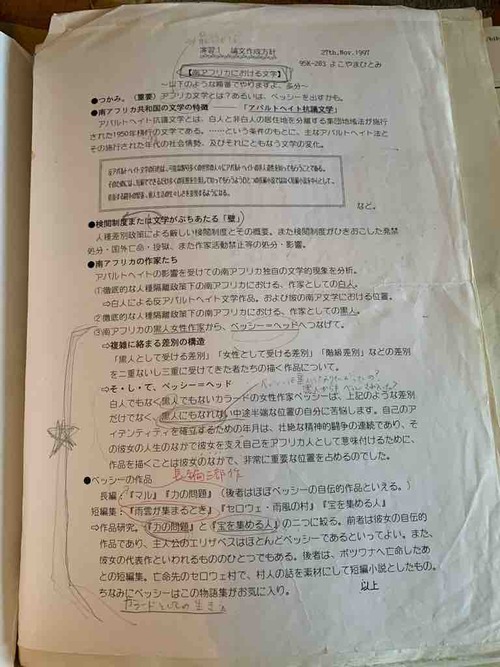 演習1　論文作成方針
27th,Nov,1997
95K-203 よこやまひとみ
【南アフリカにおける文学】
～以下のような順番でやりますよ、多分～
●つかみ。(重要) アフリカ文学とは？あるいは、ベッシーを出すかも。
●南アフリカ共和国の文学の特徴 ――「アパルトヘイト抗議文学」
アパルトヘイト抗議文学とは、白人と非白人の居住地を分離する集団地域法が施行
された1950年移行の文学である。……という条件のもとに、主なアパルトヘイト法と
その施行された年代の社会情勢、及びそれにともなう文学の変化。
など。
●検閲制度または文学がぶちあたる「壁」
人種差別政策による厳しい検閲制度とその概要。また検閲制度がひきおこした発禁
処分・国外亡命・投獄、また作家活動禁止等の処分・影響。
●南アフリカの作家たち
アパルトヘイトの影響を受けての南アフリカ独自の文学的現象を分析。
①徹底的な人種隔離政策下の南アフリカにおける、作家としての白人。
⇨白人による反アパルトヘイト文学作品。および彼の南ア文学における位置。
②徹底的な人種隔離政策下の南アフリカにおける、作家としての黒人。
③南アフリカの黒人女性作家から、ベッシー＝ヘッドへつなげて。
⇨複雑に絡まる差別の構造
「黒人として受ける差別」「女性として受ける差別」「階級差別」などの差別
を二重ないし三重に受けてきた者たちの描く作品について。
⇨そ・し・て、ベッシー＝ヘッド
白人でもなく黒人でもないカラードの女性作家ベッシーは、上記のような差別
だけでなく、黒人にもなれない中途半端な位置の自分に苦悩します。自己のア
イデンティティを確立するための年月は、壮絶な精神的闘争の連続であり、そ
の彼女の人生のなかで彼女を支え自己をアフリカ人として意味付けるために、
作品を描くことは彼女のなかで、非常に重要な位置を占めるのでした。
●ベッシーの作品
長編三部作
長編：『マル』『力の問題』（後者はほぼベッシーの自伝的作品といえる。）
短編：『雨雲が集まるとき』『セロウェ・雨風の村』『宝を集める人』
⇨作品研究。『力の問題』と『宝を集める人』の二つに絞る。前者は彼女の自伝的
作品であり、主人公のエリザベスはほとんどベッシーであるといってよい。また、
彼女の代表作といわれるもののひとつでもある。後者は、ボツワナへ亡命したあ
との短編集。亡命先のセロウェ村で、村人の話を素材にして短編小説としたもの。
ちなみにベッシーはこの物語集がお気に入り。
以上
カラードとしての生き